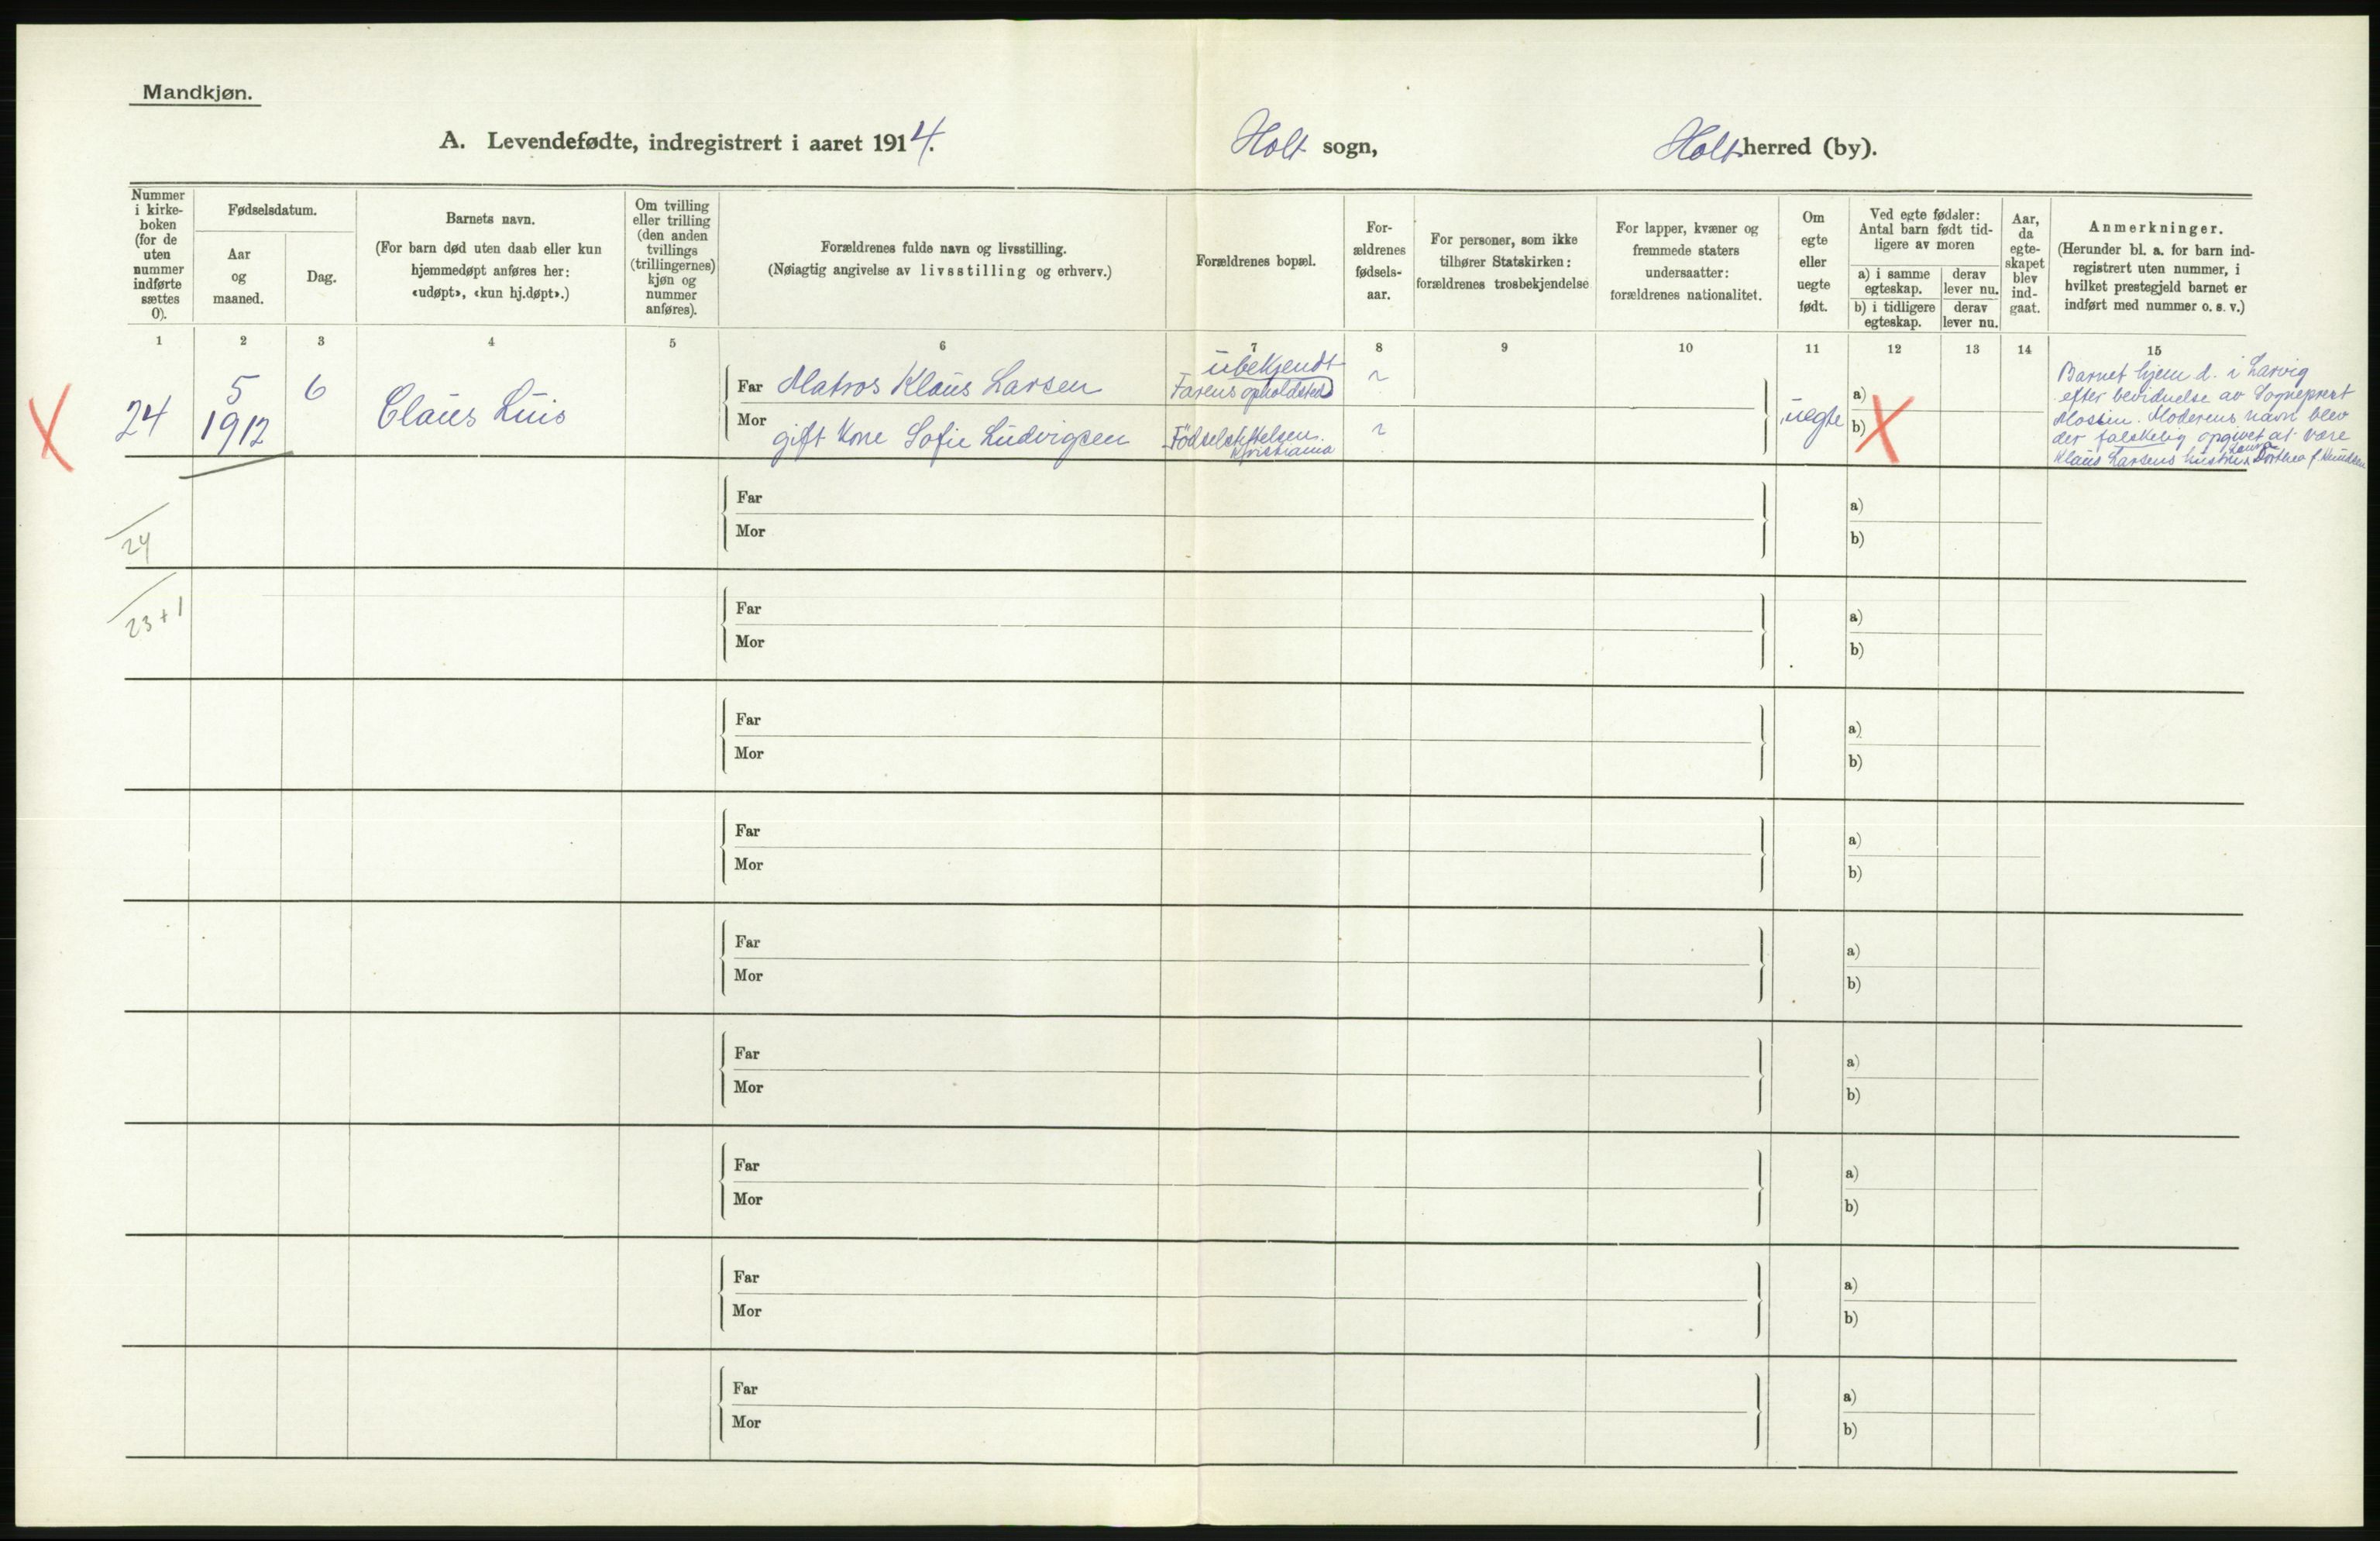 Mandkjøn.
A. Levendefødte, indregistrert i aaret 1914.
Holt sogn,
Holt herred (by).
Nummer
i kirke-
boken
(for de
uten
nummer
indførte
sættes
0).
Fødselsdatum.
Aar
og
maaned.
Dag.
Barnets navn.
(For barn død uten daab eller kun
hjemmedøpt anføres her:
«udøpt», «kun hj.døpt».)
Om tvilling
eller trilling
(den anden
tvillings
(trillingernes)
kjøn og
nummer
anføres).
Forældrenes fulde navn og livsstilling.
(Nøiagtig angivelse av livsstilling og erhverv.)
Forældrenes bopæl.
For-
ældrenes
fødsels-
aar.
For personer, som ikke
tilhører Statskirken:
forældrenes trosbekjendelse
For lapper, kvæner og
fremmede staters
undersaatter:
forældrenes nationalitet.
Om
egte
eller
uegte
født.
Ved egte fødsler:
Antal barn født tid-
ligere av moren
a) i samme
egteskap.
derav
lever nu.
b) i tidligere
egteskap.
derav
lever nu.
Aar,
da
egte-
skapet
blev
ind-
gaat.
Anmerkninger.
(Herunder bl. a. for barn ind-
registrert uten nummer, i
hvilket prestegjeld barnet er
indført med nummer o. s. v.)
1 2 3 4 5 6 7 8 9 10 11 12 13 14 15
24
5
1912
6
Claus Luis
Far Matros Klaus Larsen
ubekjendt
Farens opholdsted
Mor gift Kone Sofie Ludvigsen
Fødselstiftelsen.
Kristiania
uegte
a)
b)
Barnet hjem d. i Larvig
efter bevidnelse av Sogneprest
Mossin. Moderens navn blev
der falskelig opgivet at være
Klaus Larsens hustru Dorthea f. Knudsen
Far
Mor
a)
b)
24
Far
Mor
a)
b)
23+1
Far
Mor
a)
b)
Far
Mor
a)
b)
Far
Mor
a)
b)
Far
Mor
a)
b)
Far
Mor
a)
b)
Far
Mor
a)
b)
Far
Mor
a)
b)